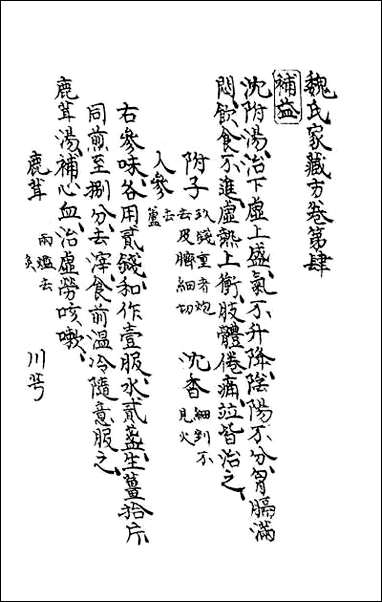 魏氏家藏方卷第肆
補益
沈附湯治下虛上盛氣不升降陰陽不分胷膈滿
悶飲食不進虛熱上衝肢體倦痛竝皆治之
附子玖錢重者炮去皮臍細切 沈香細剉不見火
人參去蘆
右參味各用貳錢和作壹服水貳盞生薑拾片
同煎至捌分去滓食前溫冷隨意服之
鹿茸湯補心血治虛勞咳嗽
鹿茸兩爁去 川芎